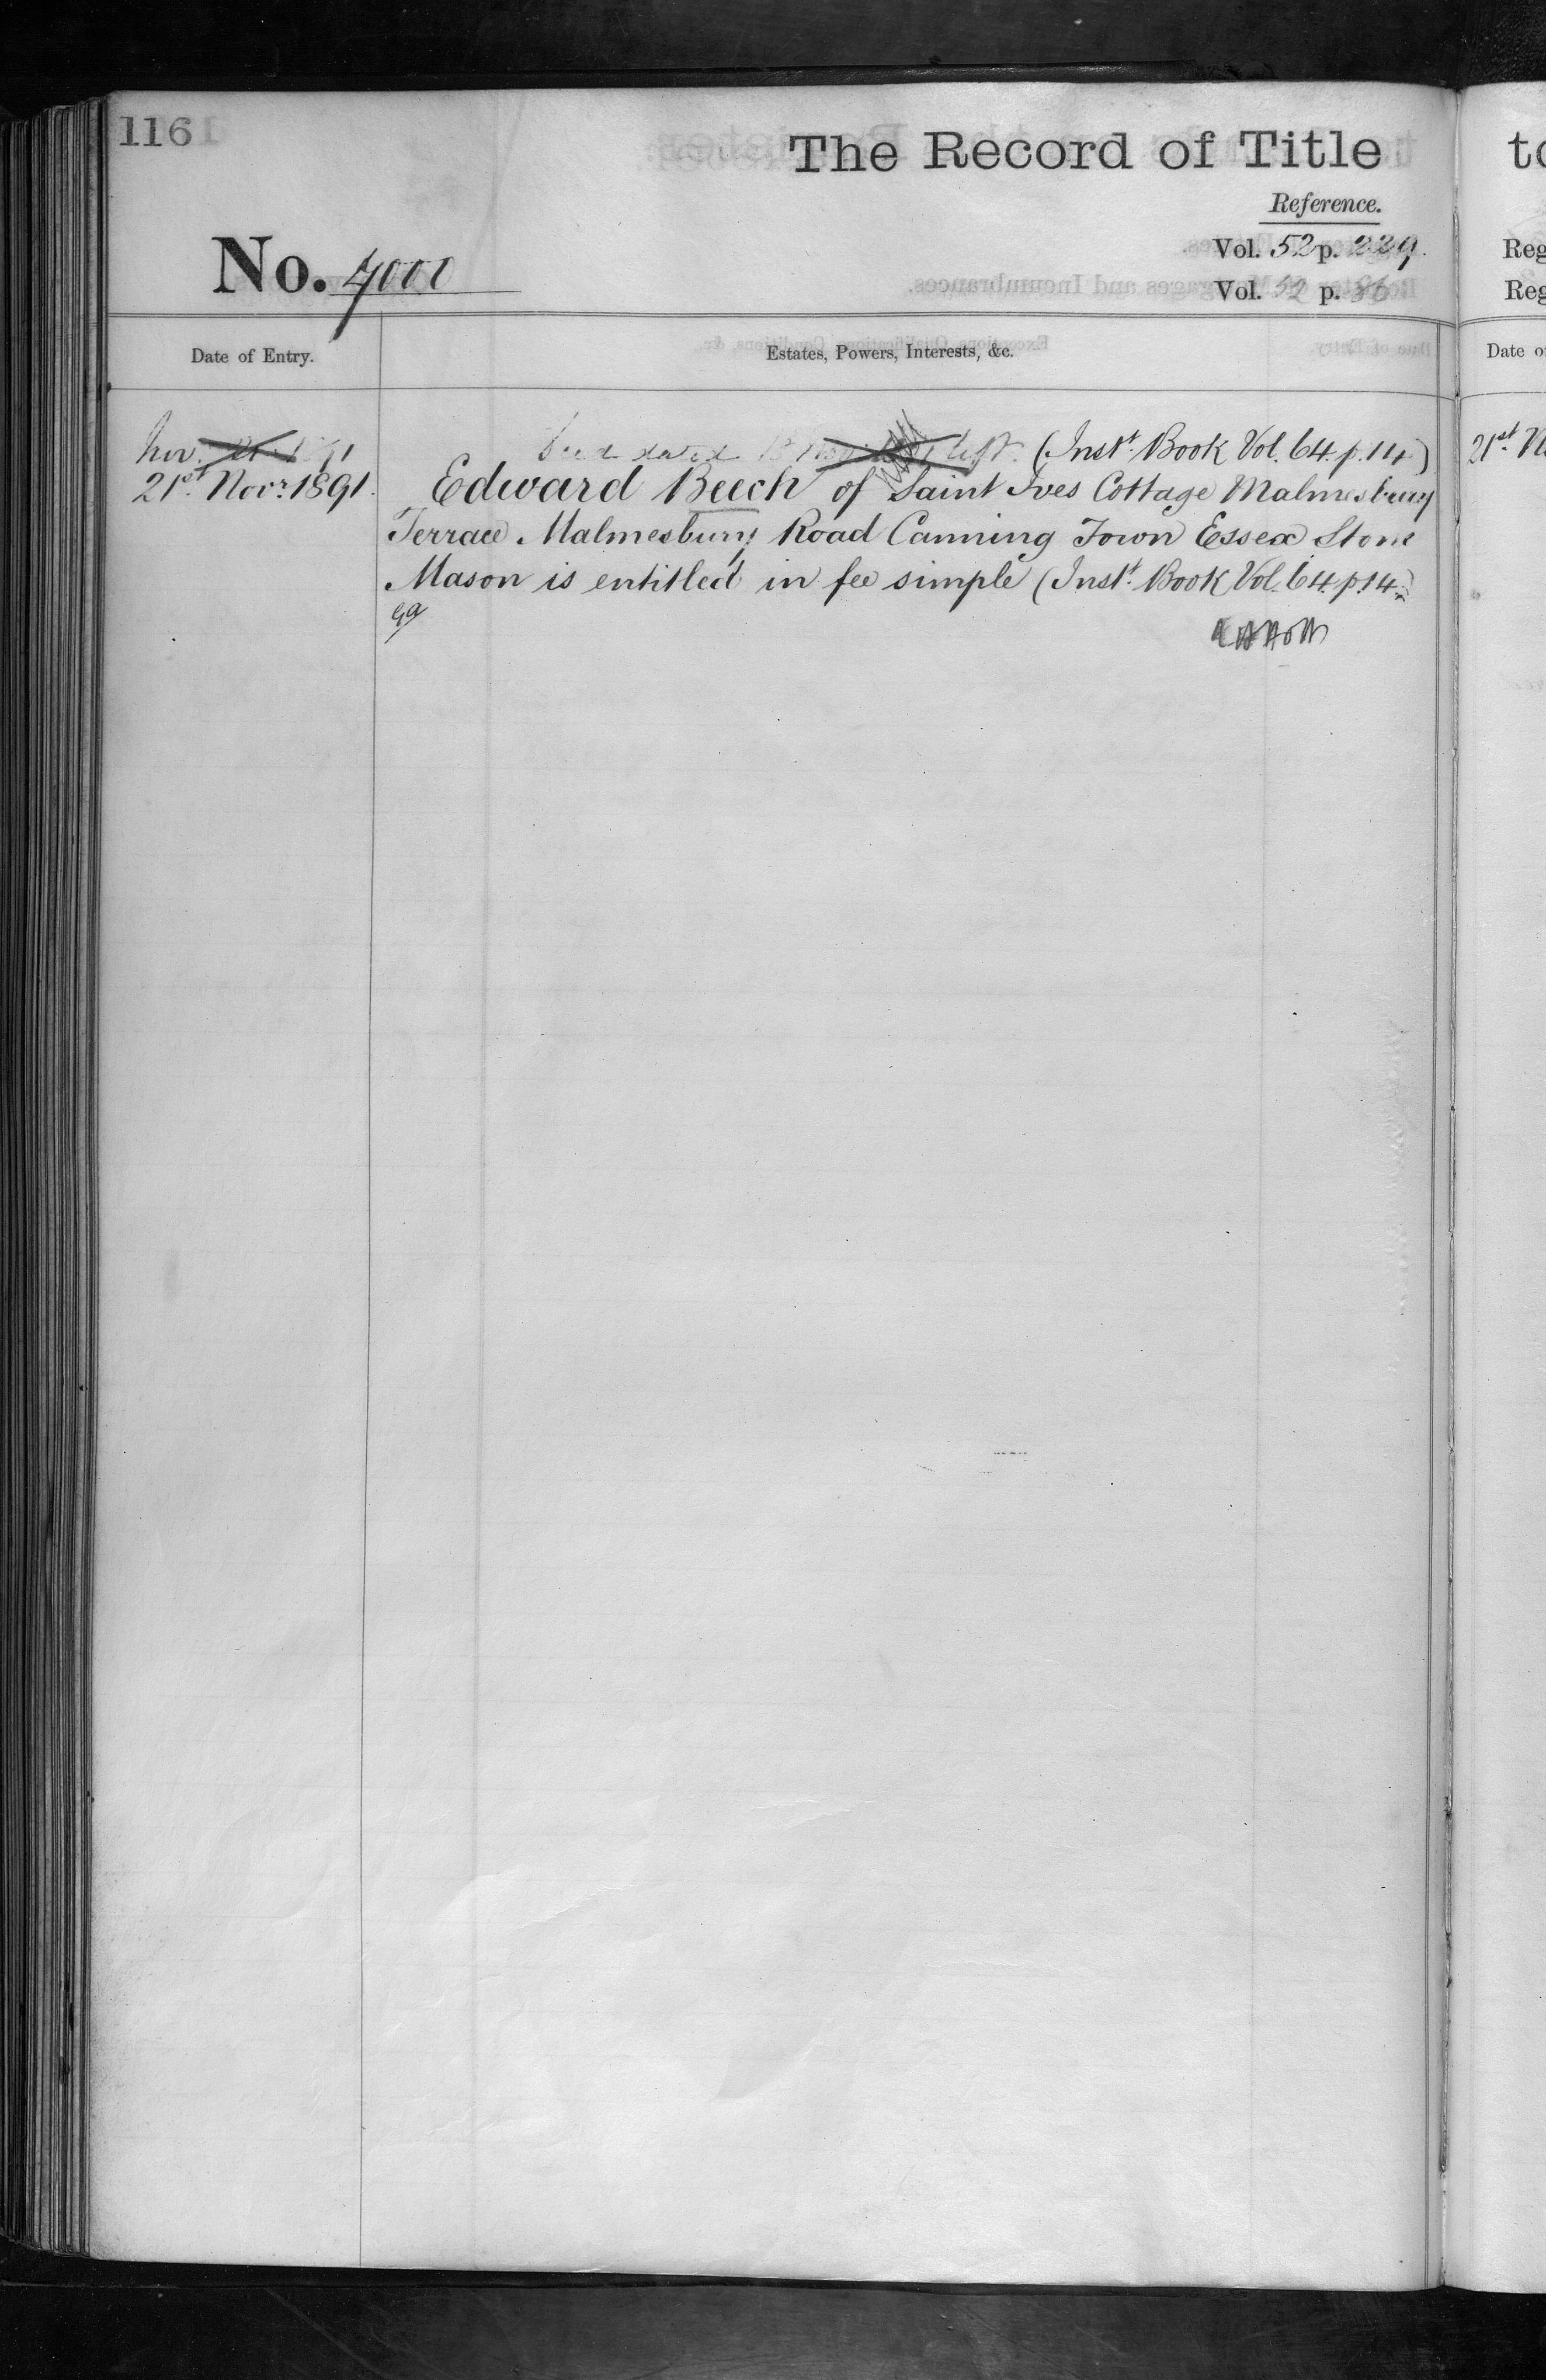 116
The Record of Title
Reference.
No. 4000
Vol. 52 p. 229.
Vol. 52 p. 36
Date of Entry.
Estates, Powers, Interests, &c.
Deed dated left (Inst. Book Vol. 64. p. 14)
21st. Novr. 1891. Edward Beech of Saint Ives Cottage Malmesbury
Terrace Malmesbury Road Canning Town Essex Stone
Mason is entitled in fee simple (Inst. Book Vol. 64. p. 14.)
to
Reg
Reg
Date o
21st. N